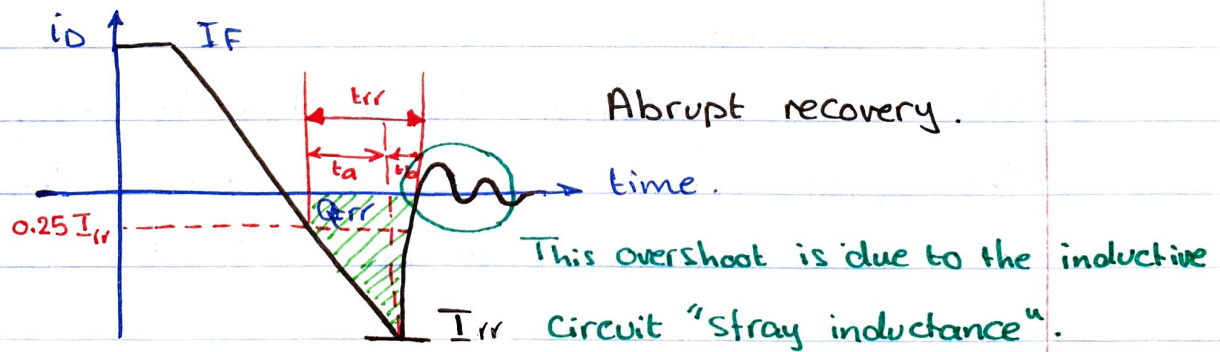 iD
IF
trr
Abrupt recovery.
ta
tb
time.
Qrr
0.25 Irr
This overshoot is due to the inductive
Irr
circuit "stray inductance".